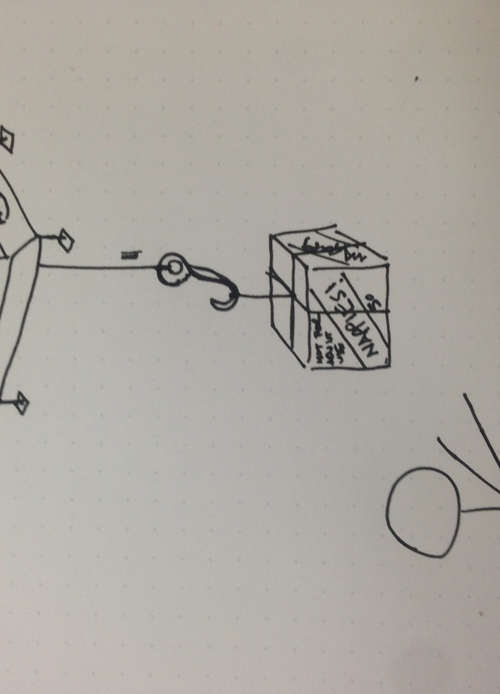 NOT FOR
ADULT
USE
NAPPIES!
50